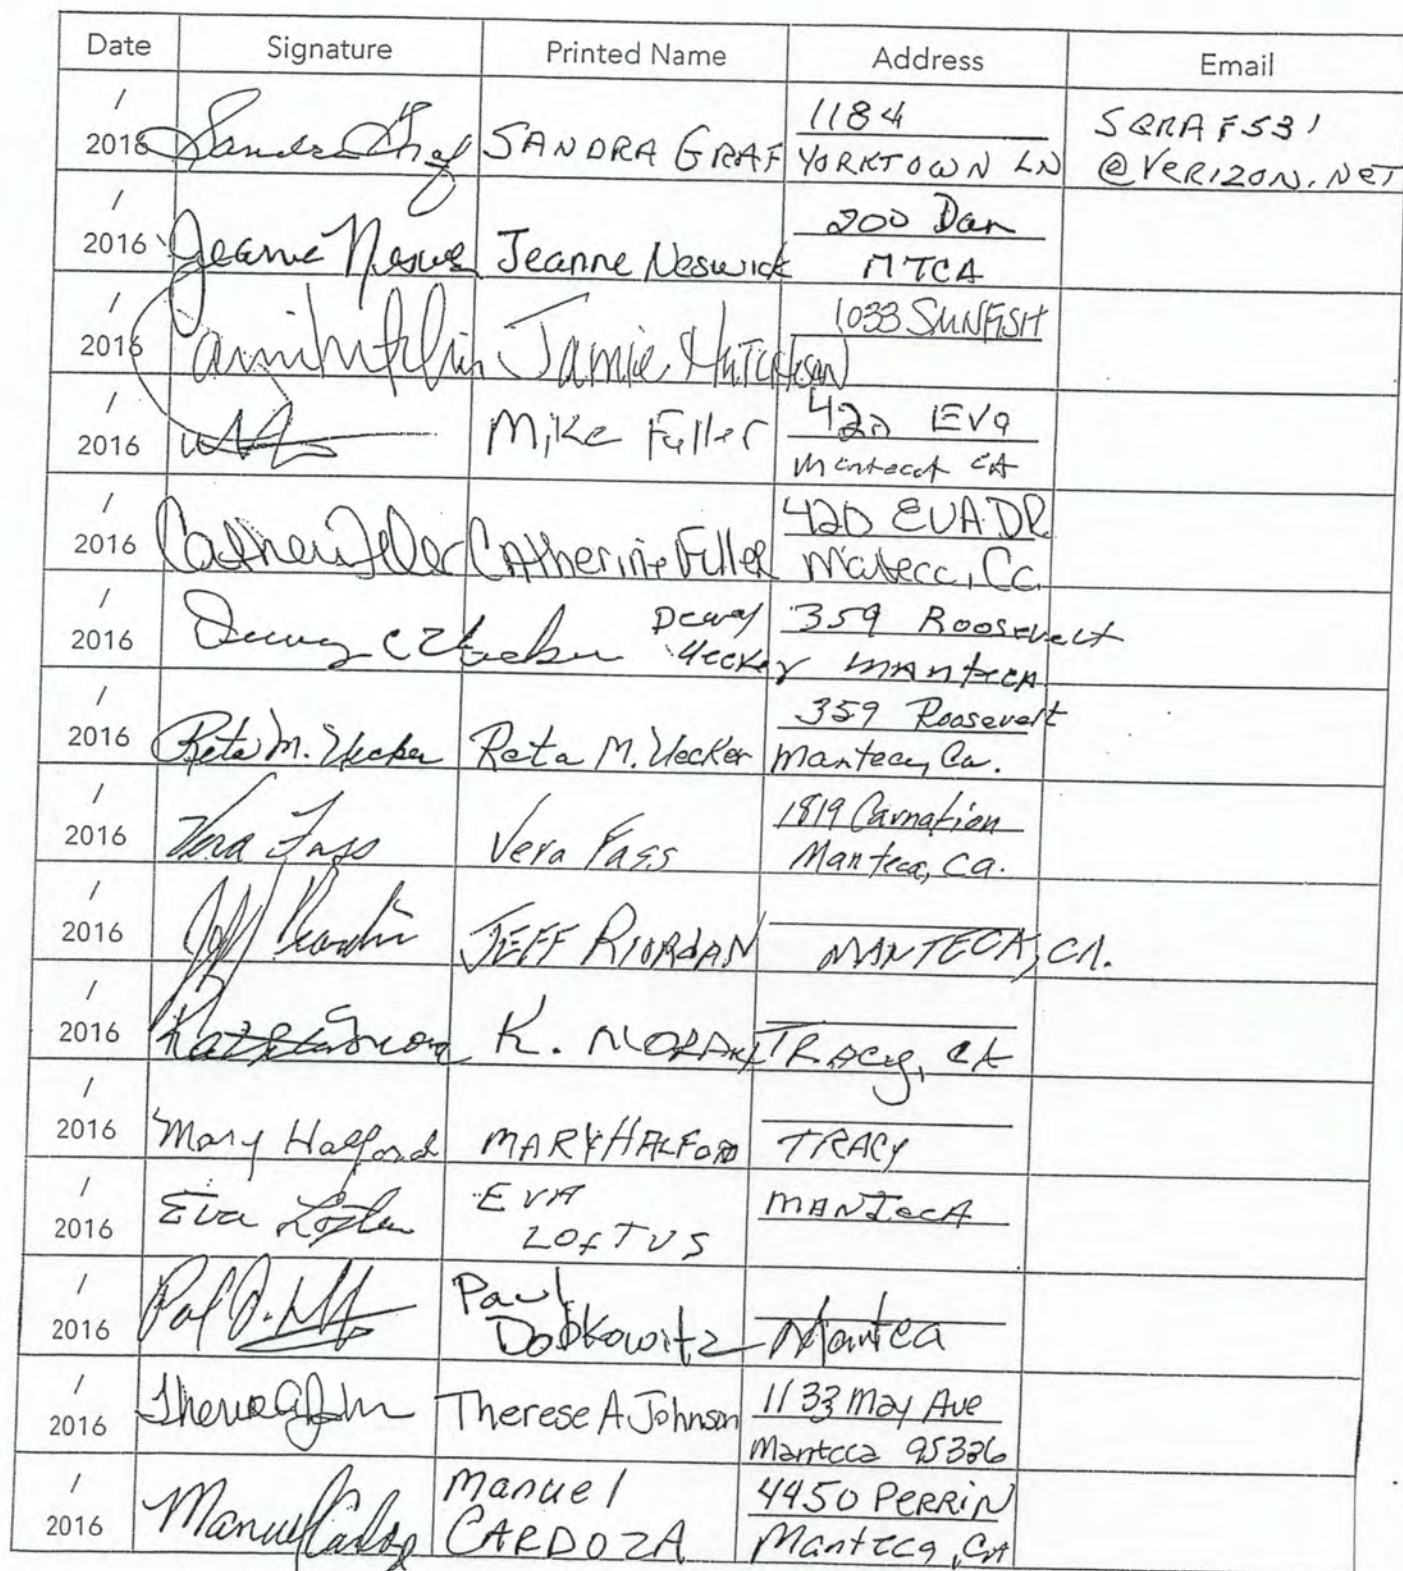 Date Signature Printed Name Address Email
/
2016 Sandra Graf SANDRA GRAF 1184
YORKTOWN LN SGRAF531
@VERIZON.NET
/
2016 Jeanne Jeanne Neswick 200 Dan
MTCA
/
2016 Jamie Hutchison 1033 SUNFISH
/
2016 Mike Fuller 420 EVA
Manteca CA
/
2016 Catherine Fuller CAtherine Fuller 420 EVA DR
Manteca, Ca.
/
2016 Dewey C Uecker Dewey
Uecker 359 Roosevelt
MANtecA
/
2016 Reta M. Uecker Reta M. Uecker 359 Roosevelt
Manteca, Ca.
/
2016 Vera Fass Vera Fass 1819 Carnation
Manteca, Ca.
/
2016 Jeff Riordan JEFF RIORDAN MANTECA, CA.
/
2016 K. MORAN TRACY, CA
/
2016 Mary Halford MARY HALFORD TRACY
/
2016 Eva Loftus EVA
LOfTUS MANTecA
/
2016 Paul
Dobkowitz Manteca
/
2016 Therese A Johnson Therese A Johnson 1133 May Ave
Manteca 95336
/
2016 Manuel Cardoza Manuel
CARDOZA 4450 PERRIN
Manteca, CA